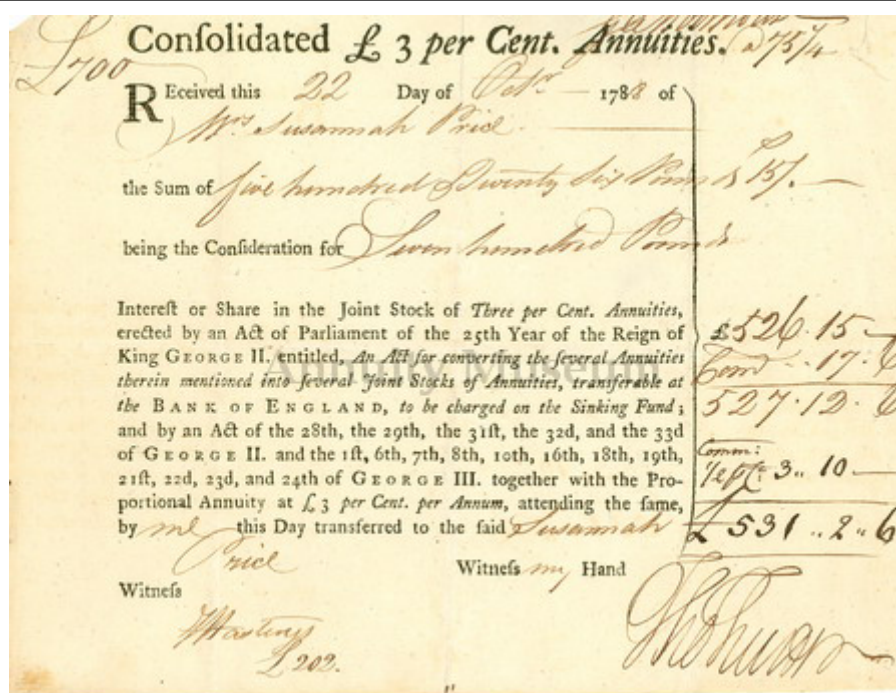 Conſolidated £ 3 per Cent. Annuities.
a 75 1/4
£700
REceived this 22 Day of Octr 1788 of
Mrs Susannah Price
the Sum of five hundred Twenty Six Pounds 15/.
being the Conſideration for Seven hundred Pounds
Intereſt or Share in the Joint Stock of Three per Cent. Annuities,
erected by an Act of Parliament of the 25th Year of the Reign of
King GEORGE II. entitled, An Act for converting the ſeveral Annuities
therein mentioned into ſeveral Joint Stocks of Annuities, transferable at
the BANK OF ENGLAND, to be charged on the Sinking Fund;
and by an Act of the 28th, the 29th, the 31ſt, the 32d, and the 33d
of GEORGE II. and the 1ſt, 6th, 7th, 8th, 10th, 16th, 18th, 19th,
21ſt, 22d, 23d, and 24th of GEORGE III. together with the Pro-
portional Annuity at £ 3 per Cent. per Annum, attending the ſame,
by me this Day transferred to the ſaid Susannah
Price
Witneſs my Hand
Witneſs
Hastings
£202.
£526.15
17.6
527.12.6
Comm:
3..10
£531..2..6
Annuity Museum